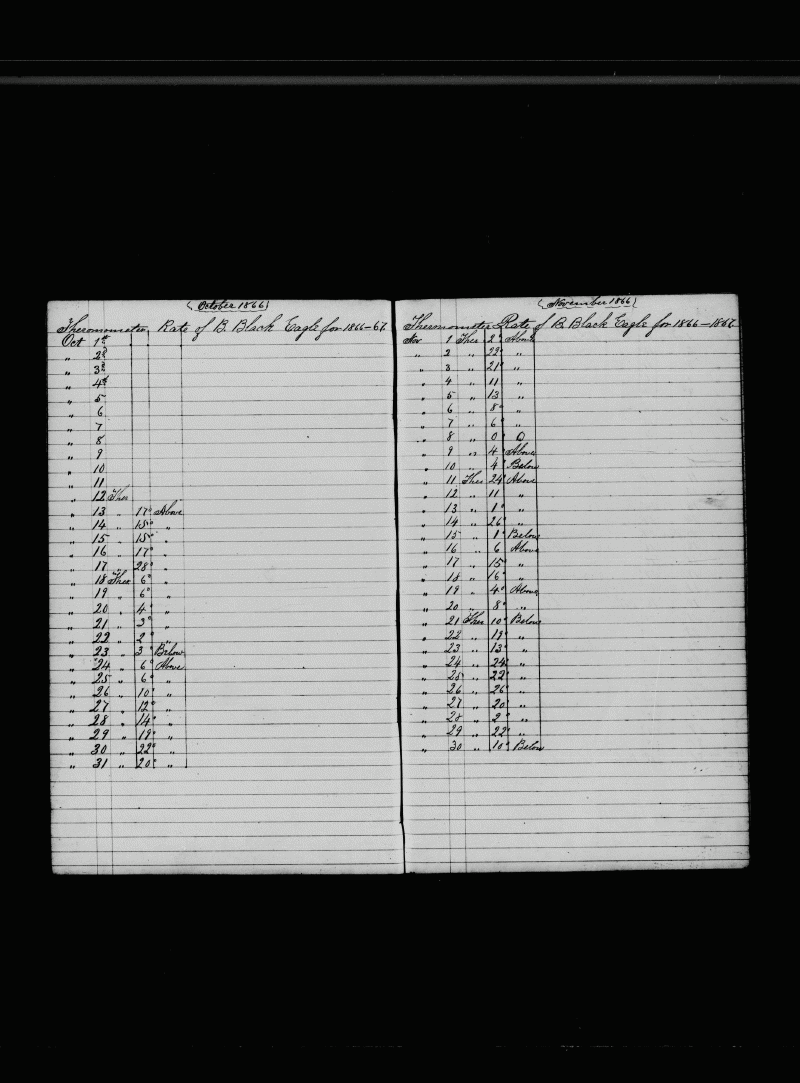 (October 1866)
Thermometer Rate of B. Black Eagle for 1866-67.
Oct 1st
„ 2d
„ 3d
„ 4th
„ 5
„ 6
„ 7
„ 8
„ 9
„ 10
„ 11
„ 12 Ther
„ 13 „ 17° Above
„ 14 „ 15° „
„ 15 „ 15° „
„ 16 „ 17° „
„ 17 „ 28° „
„ 18 Ther 6° „
„ 19 „ 6° „
„ 20 „ 4° „
„ 21 „ 3° „
„ 22 „ 2° „
„ 23 „ 3° Below
„ 24 „ 6° Above
„ 25 „ 6° „
„ 26 „ 10° „
„ 27 „ 12° „
„ 28 „ 14° „
„ 29 „ 19° „
„ 30 „ 22° „
„ 31 „ 20° „
(November 1866)
Thermometer Rate of B. Black Eagle for 1866-1867
Nov 1 Ther 2° Above
„ 2 „ 22° „
„ 3 „ 21° „
„ 4 „ 11 „
„ 5 „ 13 „
„ 6 „ 8° „
„ 7 „ 6° „
„ 8 „ 0° 0
„ 9 „ 4° Above
„ 10 „ 4° Below
„ 11 Ther 24° Above
„ 12 „ 11 „
„ 13 „ 1° „
„ 14 „ 26° „
„ 15 „ 1° Below
„ 16 „ 6 Above
„ 17 „ 15° „
„ 18 „ 16° „
„ 19 „ 4° Above
„ 20 „ 8° „
„ 21 Ther 10° Below
„ 22 „ 19° „
„ 23 „ 13° „
„ 24 „ 24° „
„ 25 „ 22° „
„ 26 „ 26° „
„ 27 „ 20° „
„ 28 „ 2° „
„ 29 „ 22° „
„ 30 „ 10° Below